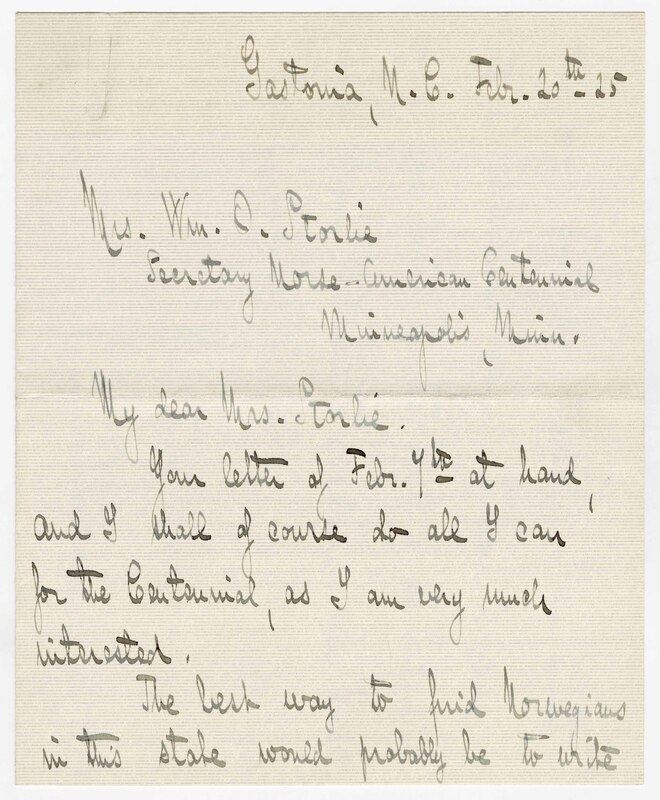 Gastonia, N.C. Febr. 20th - 25
Mrs. Wm. O. Storlie
Secretary Norse-American Centennial
Minneapolis, Minn.
My dear Mrs. Storlie.
Your letter of Febr. 7th at hand,
and I shall of course do all I can
for the Centennial, as I am very much
interested.
The best way to find Norwegians
in this state would probably be to write